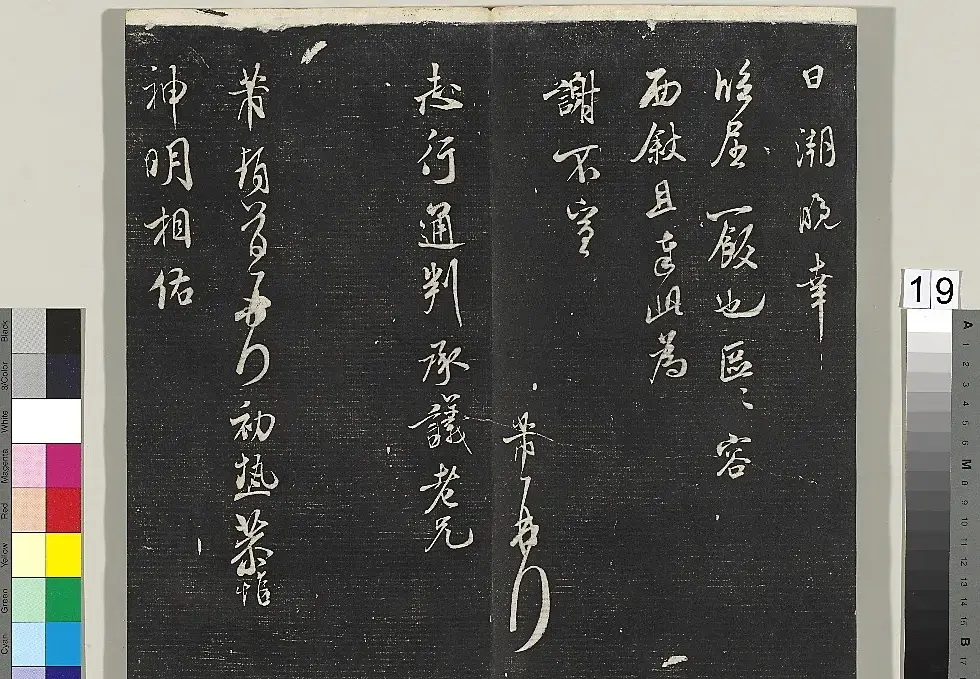 日潮晚幸
臨屈一飯也區〻容
面敘且此為
謝不宣
芾再拜
志行通判承議老兄
芾頓首再拜初熱恭惟
神明相佑
19
Black
3/Color
White
Magenta
Red
Yellow
Green
Cyan
A 1 2 3 4 5 6 M 8 9 10 11 12 13 14 15 B 17